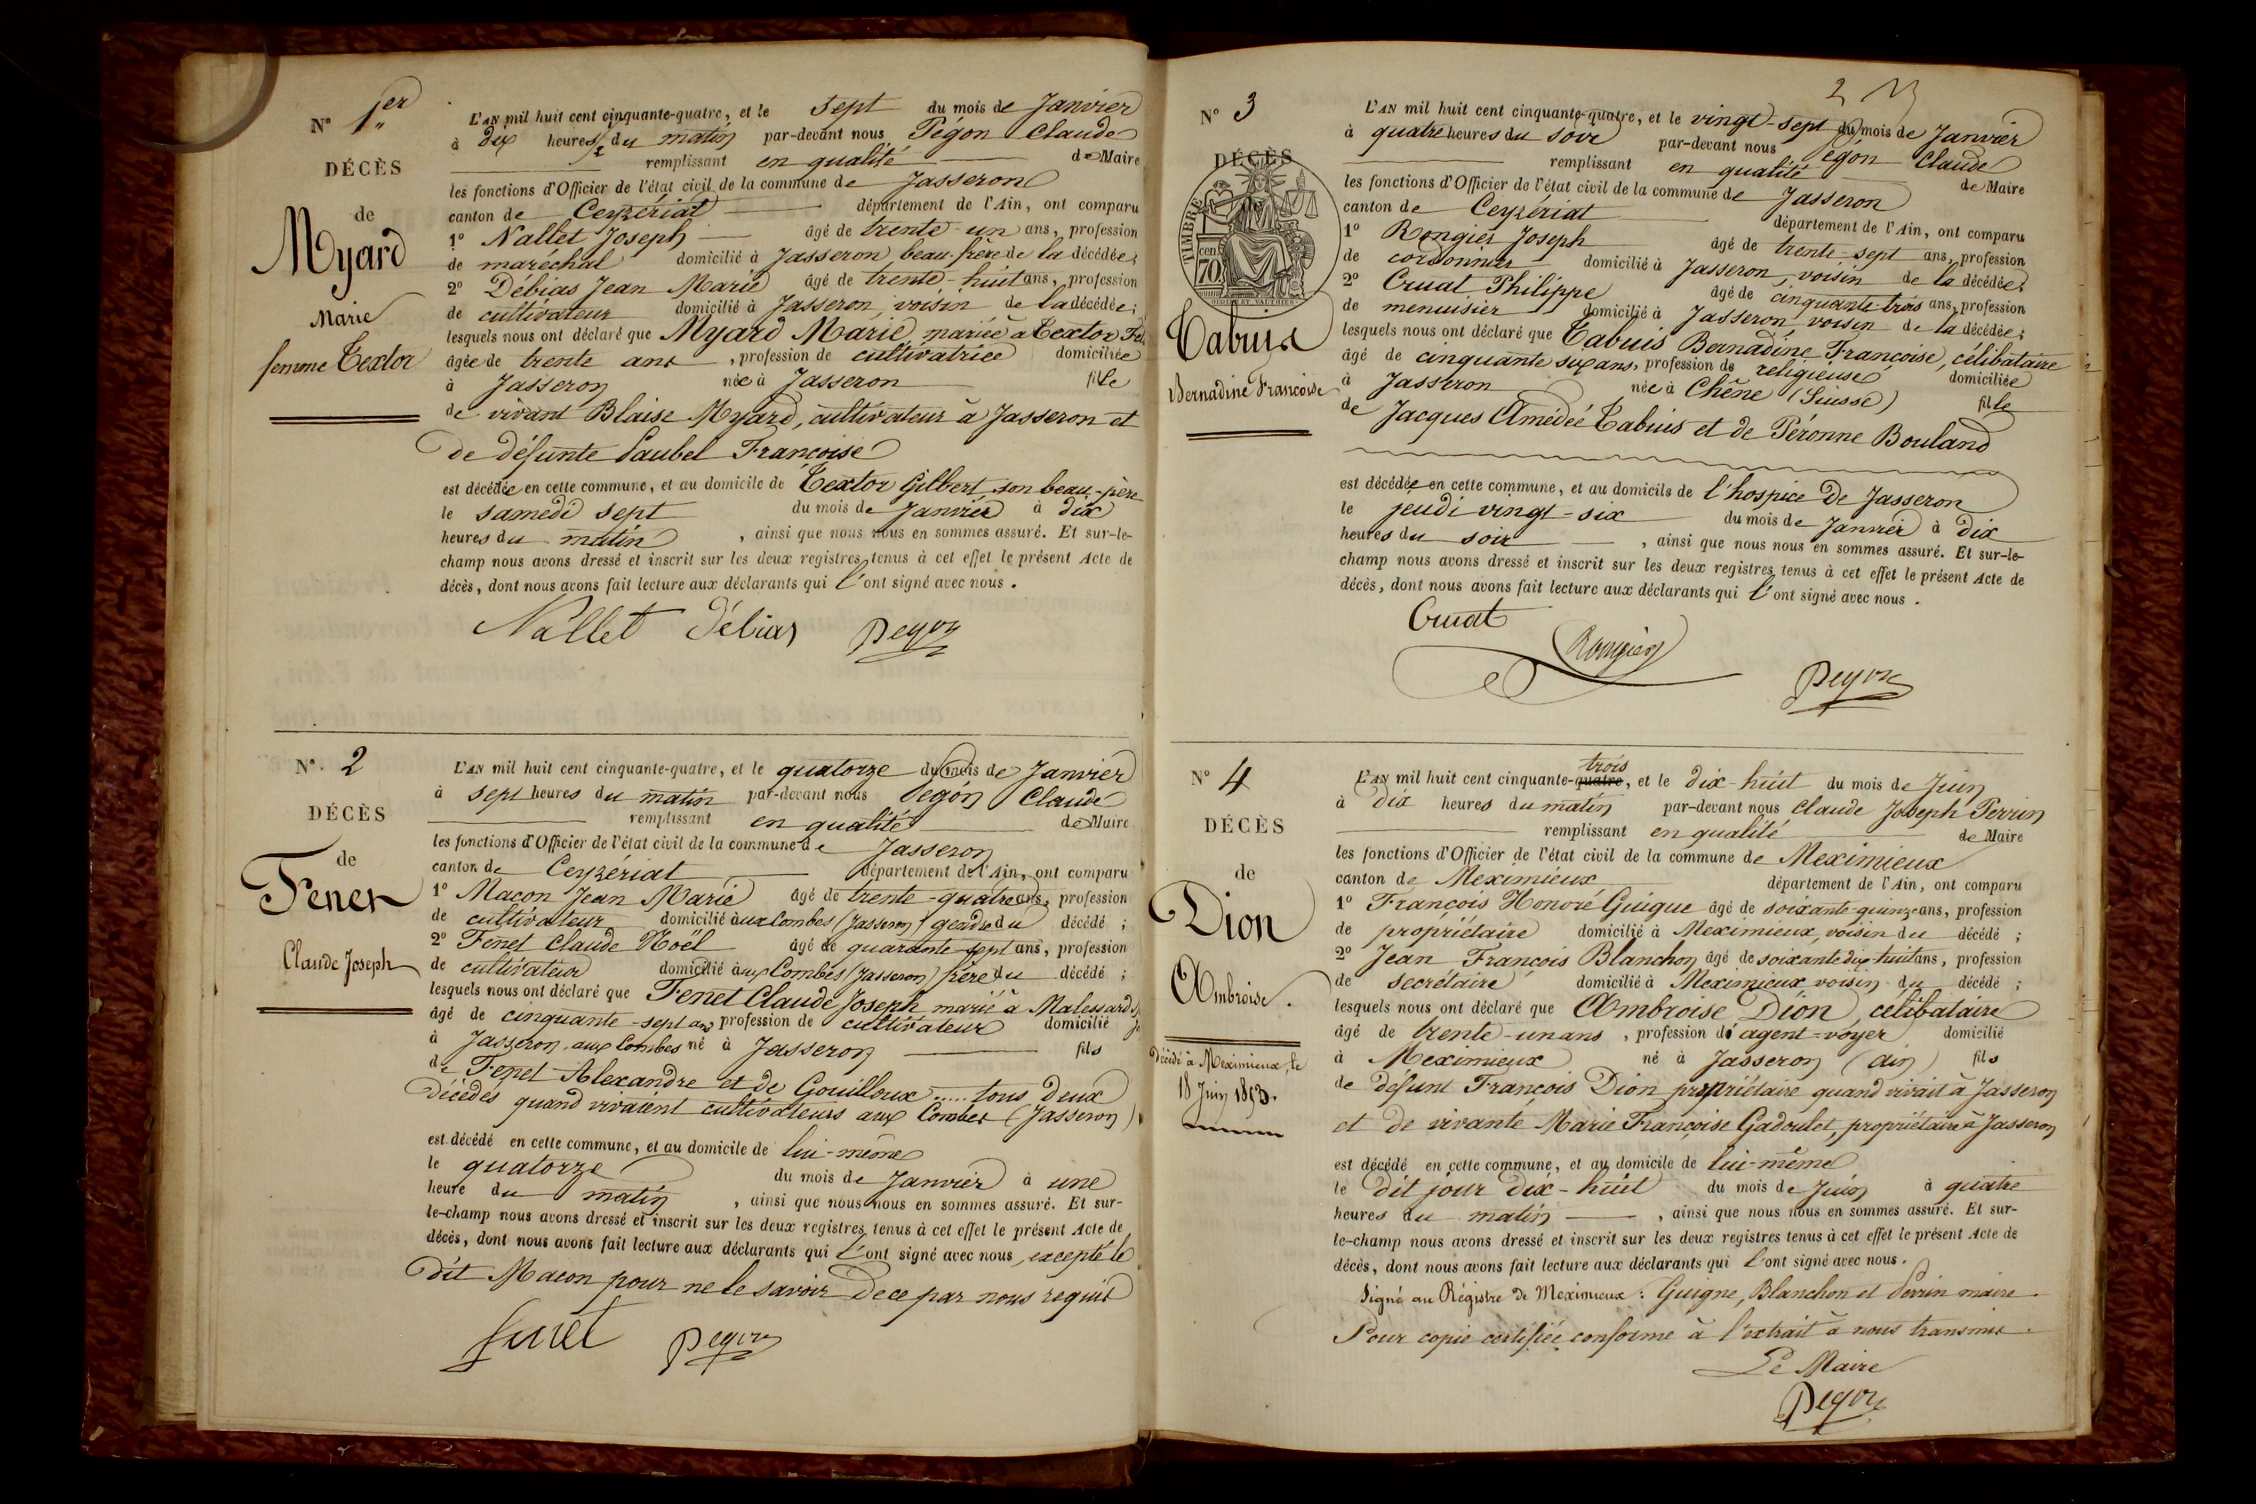 Nº 1er
DÉCÈS
de
Myard
Marie
femme Textor
L'AN mil huit cent cinquante-quatre, et le sept du mois de Janvier
à dix heures du matin par-devant nous Pégon Claude
remplissant en qualité de Maire
les fonctions d'Officier de l'état civil de la commune de Jasseron
canton de Ceyzériat département de l'Ain, ont comparu
1º Nallet Joseph âgé de trente-un ans, profession
de maréchal domicilié à Jasseron, beau-frère de la décédée;
2º Débias Jean Marie âgé de trente-huit ans, profession
de cultivateur domicilié à Jasseron, voisin de la décédée;
lesquels nous ont déclaré que Myard Marie mariée à Textor
âgée de trente ans, profession de cultivatrice domiciliée
à Jasseron née à Jasseron fille
de vivant Blaise Myard, cultivateur à Jasseron et
de défunte Paubel Françoise
est décédée en cette commune, et au domicile de Textor Gilbert, son beau-père
le samedi sept du mois de Janvier à dix
heures du matin, ainsi que nous nous en sommes assuré. Et sur-le-
champ nous avons dressé et inscrit sur les deux registres tenus à cet effet le présent Acte de
décès, dont nous avons fait lecture aux déclarants qui l'ont signé avec nous.
Nallet Débias Pegon
Nº. 2
DÉCÈS
de
Fenet
Claude Joseph
L'AN mil huit cent cinquante-quatre, et le quatorze du mois de Janvier
à sept heures du matin par-devant nous Pegon Claude
remplissant en qualité de Maire
les fonctions d'Officier de l'état civil de la commune de Jasseron
canton de Ceyzériat département de l'Ain, ont comparu
1º Macon Jean Marie âgé de trente-quatre ans, profession
de cultivateur domicilié aux Combes (Jasseron) gendre du décédé;
2º Fenet Claude Noël âgé de quarante-sept ans, profession
de cultivateur domicilié aux Combes (Jasseron) frère du décédé;
lesquels nous ont déclaré que Fenet Claude Joseph marié à
âgé de cinquante-sept ans profession de cultivateur domicilié
à Jasseron, aux Combes né à Jasseron fils
de Fenet Alexandre et de Gouilloux ..... tous deux
décédés quand vivaient cultivateurs aux Combes (Jasseron)
est décédé en cette commune, et au domicile de lui-même
le quatorze du mois de Janvier à une
heure du matin, ainsi que nous nous en sommes assuré. Et sur-
le-champ nous avons dressé et inscrit sur les deux registres tenus à cet effet le présent Acte de
décès, dont nous avons fait lecture aux déclarants qui l'ont signé avec nous, excepté le
dit Macon pour ne le savoir de ce par nous requis
Fenet Pegon
2
Nº 3
DÉCÈS
de
TIMBRE
70 cen
Tabuis
Bernadine Françoise
L'AN mil huit cent cinquante-quatre, et le vingt-sept du mois de Janvier
à quatre heures du soir par-devant nous Pégon Claude
remplissant en qualité de Maire
les fonctions d'Officier de l'état civil de la commune de Jasseron
canton de Ceyzériat département de l'Ain, ont comparu
1º Rongier Joseph âgé de trente-sept ans, profession
de cordonnier domicilié à Jasseron, voisin de la décédée;
2º Cruat Philippe âgé de cinquante-trois ans, profession
de menuisier domicilié à Jasseron voisin de la décédée;
lesquels nous ont déclaré que Tabuis Bernadine Françoise, célibataire
âgé de cinquante six ans, profession de religieuse domiciliée
à Jasseron née à Chêne (Suisse) fille
de Jacques Amédée Tabuis et de Péronne Bouland
est décédée en cette commune, et au domicile de l'hospice de Jasseron
le jeudi vingt-six du mois de Janvier à dix
heures du soir, ainsi que nous nous en sommes assuré. Et sur-le-
champ nous avons dressé et inscrit sur les deux registres tenus à cet effet le présent Acte de
décès, dont nous avons fait lecture aux déclarants qui l'ont signé avec nous.
Cruat
Rongier
Pegon
Nº 4
DÉCÈS
de
Dion
Ambroise.
Décédé à Meximieux, le
18 Juin 1853.
trois
L'AN mil huit cent cinquante-quatre, et le dix-huit du mois de Juin
à dix heures du matin par-devant nous Claude Joseph Perrin
remplissant en qualité de Maire
les fonctions d'Officier de l'état civil de la commune de Meximieux
canton de Meximieux département de l'Ain, ont comparu
1º François Honoré Guigue âgé de soixante-quinze ans, profession
de propriétaire domicilié à Meximieux, voisin du décédé;
2º Jean François Blanchon âgé de soixante dix huit ans, profession
de secrétaire domicilié à Meximieux voisin du décédé;
lesquels nous ont déclaré que Ambroise Dion, célibataire
âgé de trente-un ans, profession d'agent-voyer domicilié
à Meximieux né à Jasseron (Ain) fils
de défunt François Dion propriétaire quand vivait à Jasseron
et de vivante Marie Françoise Gadoulet, propriétaire à Jasseron
est décédé en cette commune, et au domicile de lui-même
le dit jour dix-huit du mois de Juin à quatre
heures du matin, ainsi que nous nous en sommes assuré. Et sur-
le-champ nous avons dressé et inscrit sur les deux registres tenus à cet effet le présent Acte de
décès, dont nous avons fait lecture aux déclarants qui l'ont signé avec nous.
Signé au Régistre de Meximieux : Guigne, Blanchon et Perrin maire.
Pour copie certifiée conforme à l'extrait à nous transmis.
Le Maire
Pegon